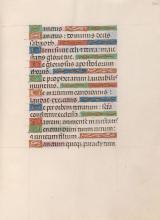 Sanctus
Sanctus dominus deus
sabaoth
Pleni sunt celi et terra maies
tatis glorie tue
Te gloriosus apostolorum
chorus
Te prophetarum laudabilis
numerus
Te martirum candidatus
laudat exercitus
Te per orbem terrarum sancta
confitetur ecclesia
Patrem immense maiestatis
Venerandum tuum verum
Sanctum quoque paraclytum